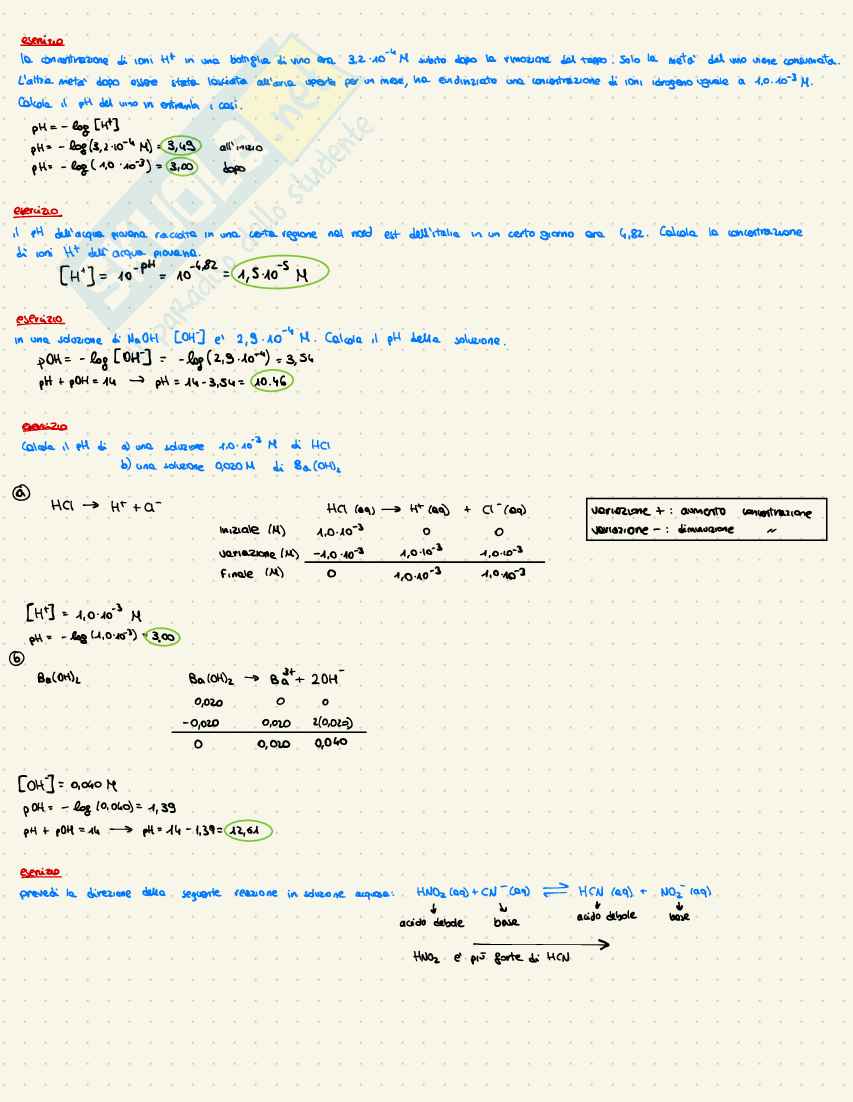 esercizio
la concentrazione di ioni H⁺ in una bottiglia di vino era 3,2·10⁻⁴ M subito dopo la rimozione del tappo. Solo la metà del vino viene consumata.
L'altra metà dopo essere stata lasciata all'aria aperta per un mese, ha evidenziato una concentrazione di ioni idrogeno uguale a 1,0·10⁻³ M.
Calcola il pH del vino in entrambi i casi.
pH = - log [H⁺]
pH = - log(3,2·10⁻⁴ M) = 3,49 all'inizio
pH = - log(1,0·10⁻³) = 3,00 dopo
esercizio
il pH dell'acqua piovana raccolta in una certa regione nel nord est dell'italia in un certo giorno era 4,82. Calcola la concentrazione
di ioni H⁺ dell'acqua piovana.
[H⁺] = 10⁻ᵖᴴ = 10⁻⁴,⁸² = 1,5·10⁻⁵ M
esercizio
in una soluzione di NaOH [OH⁻] e' 2,9·10⁻⁴ M. Calcola il pH della soluzione.
pOH = - log [OH⁻] = - log(2,9·10⁻⁴) = 3,54
pH + pOH = 14 → pH = 14 - 3,54 = 10.46
esercizio
Calcola il pH di a) una soluzione 1.0·10⁻³ M di HCl
b) una soluzione 0,020 M di Ba(OH)₂
a
HCl → H⁺ + Cl⁻
HCl (aq) → H⁺ (aq) + Cl⁻ (aq)
iniziale (M) 1,0·10⁻³ 0 0
variazione (M) -1,0·10⁻³ 1,0·10⁻³ 1,0·10⁻³
Finale (M) 0 1,0·10⁻³ 1,0·10⁻³
variazione + : aumento concentrazione
variazione - : diminuzione ~
[H⁺] = 1,0·10⁻³ M
pH = - log(1,0·10⁻³) = 3,00
b
Ba(OH)₂
Ba(OH)₂ → Ba²⁺ + 2OH⁻
0,020 0 0
-0,020 0,020 2(0,020)
0 0,020 0,040
[OH⁻] = 0,040 M
pOH = - log (0,040) = 1,39
pH + pOH = 14 → pH = 14 - 1,39 = 12,61
esercizio
prevedi la direzione della seguente reazione in soluzione acquosa: HNO₂ (aq) + CN⁻ (aq) ⇌ HCN (aq) + NO₂⁻ (aq)
↓ ↓ ↓ ↓
acido debole base acido debole base
HNO₂ e' più forte di HCN
SKUOLA.net
paradiso dello studente